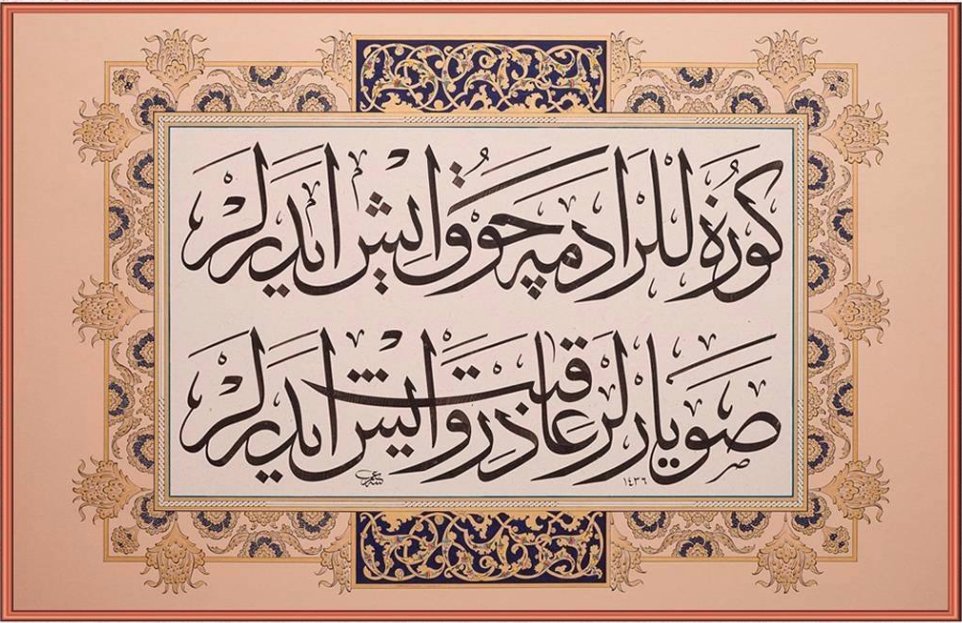 كوزه للر ادمه چوق ايش ايدرلر
صويارلر عاقبت درويش ايدرلر
١٤٣٦